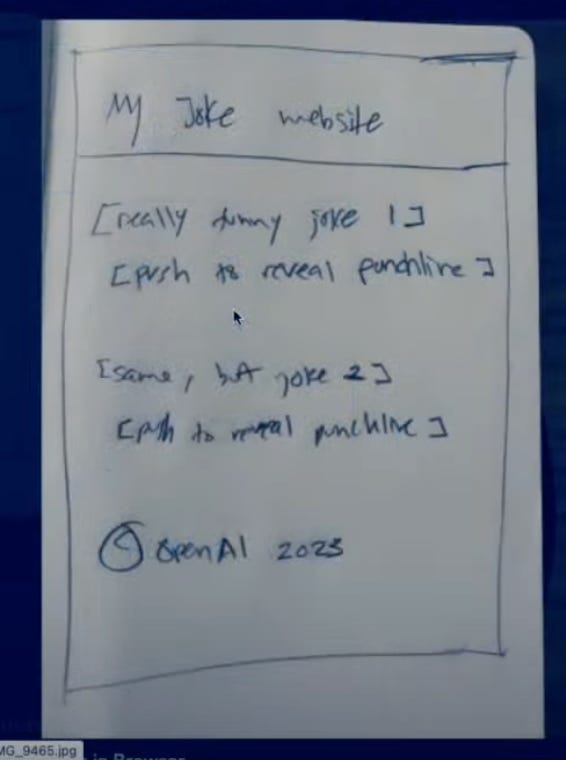 My Joke website
[really funny joke 1]
[push to reveal punchline]
[same, but joke 2]
[push to reveal punchline]
© OpenAI 2023
MG_9465.jpg
in Browser